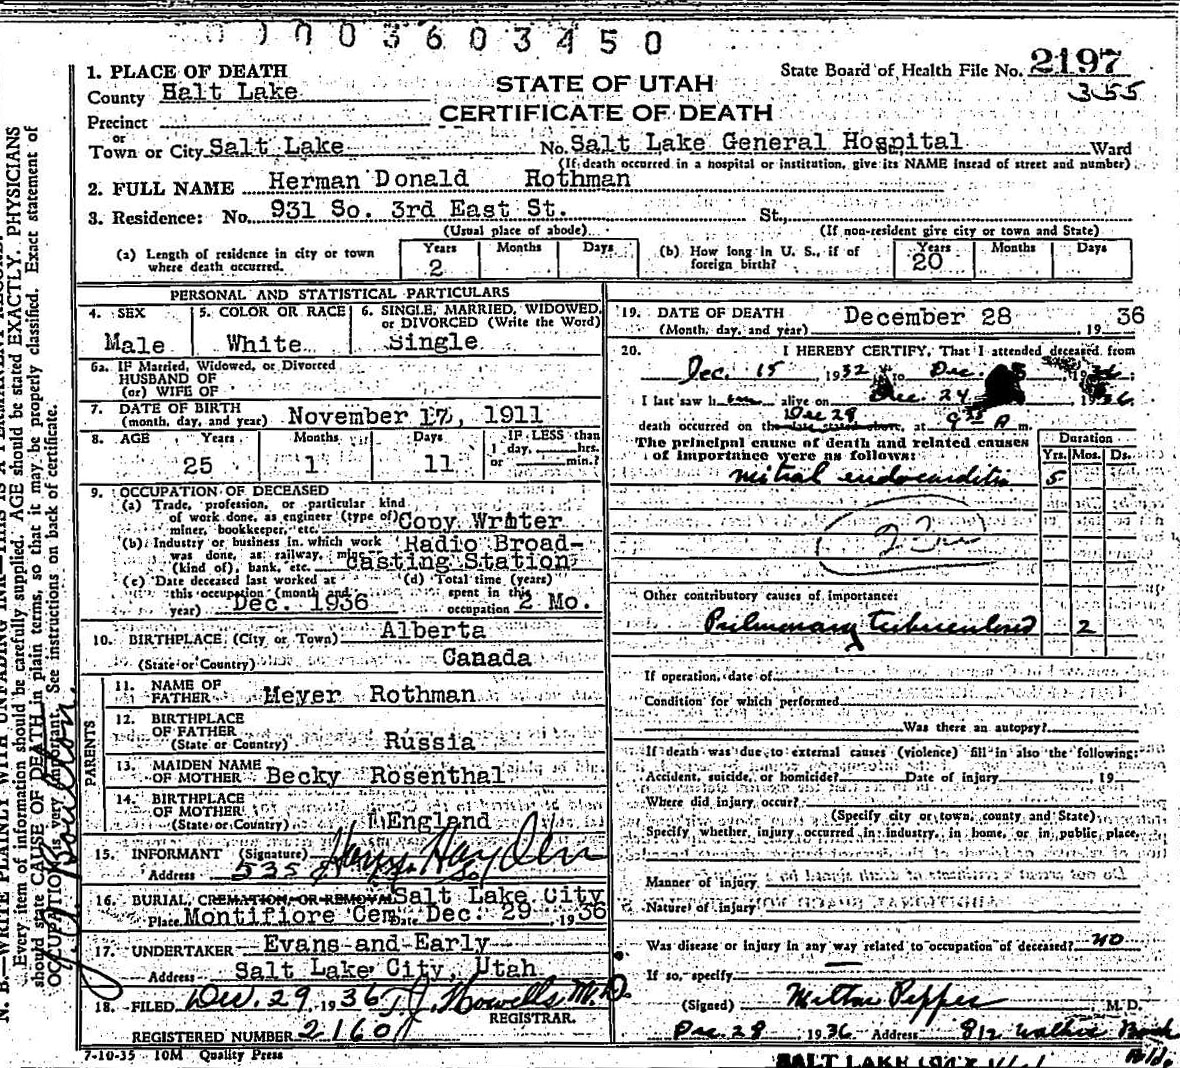 0 0 0 0 3 6 0 3 4 5 0
1. PLACE OF DEATH
STATE OF UTAH
State Board of Health File No. 2197
County Halt Lake
CERTIFICATE OF DEATH
355
Precinct
or
Town or City Salt Lake No. Salt Lake General Hospital Ward
(If death occurred in a hospital or institution, give its NAME insead of street and number)
2. FULL NAME Herman Donald Rothman
3. Residence: No. 931 So. 3rd East St. St.,
(Usual place of abode) (If non-resident give city or town and State)
(a) Length of residence in city or town where death occurred. Years 2 Months Days
(b) How long in U. S., if of foreign birth? Years 20 Months Days
PERSONAL AND STATISTICAL PARTICULARS
4. SEX Male
5. COLOR OR RACE White
6. SINGLE, MARRIED, WIDOWED, or DIVORCED (Write the Word) Single
6a. IF Married, Widowed, or Divorced
HUSBAND OF
(or) WIFE OF
7. DATE OF BIRTH
(month, day, and year) November 17, 1911
8. AGE Years Months Days IF LESS than
1 day, hrs.
25 1 11 or min.?
9. OCCUPATION OF DECEASED
(a) Trade, profession, or particular kind
of work done, as engineer (type of)
miner, bookkeeper, etc. Copy Writer
(b) Industry or business in which work
was done, as railway, mine
(kind of), bank, etc. Radio Broad-
casting Station
(c) Date deceased last worked at
this occupation (month and
year) Dec. 1936
(d) Total time (years)
spent in this
occupation 2 Mo.
10. BIRTHPLACE (City or Town) Alberta
(State or Country) Canada
PARENTS
11. NAME OF
FATHER Meyer Rothman
12. BIRTHPLACE
OF FATHER
(State or Country) Russia
13. MAIDEN NAME
OF MOTHER Becky Rosenthal
14. BIRTHPLACE
OF MOTHER
(State or Country) England
15. INFORMANT (Signature) Harry
Address 535 So
16. BURIAL, CREMATION, OR REMOVAL Salt Lake City
Place Montifiore Cem Date Dec. 29 1936
17. UNDERTAKER Evans and Early
Address Salt Lake City, Utah
18. FILED Dec. 29, 1936 T.J. Howells M.D.
REGISTRAR.
REGISTERED NUMBER 2160
7-10-35 10M Quality Press
19. DATE OF DEATH
(Month, day, and year) December 28 , 1936
20. I HEREBY CERTIFY, That I attended deceased from
Dec. 15, 1932 to Dec.
I last saw him alive on Dec. 24 1936
death occurred on the Dec 28 at 9 35 A m.
The principal cause of death and related causes
of importance were as follows:
Duration
Yrs. Mos. Ds.
Mitral endocarditis 5
Other contributory causes of importance:
Pulmonary tuberculosis 2
If operation, date of
Condition for which performed
Was there an autopsy?
If death was due to external causes (violence) fill in also the following:
Accident, suicide, or homicide? Date of injury , 19
Where did injury occur?
(Specify city or town, county and State)
Specify whether injury occurred in industry, in home, or in public place.
Manner of injury
Nature of injury
Was disease or injury in any way related to occupation of deceased? no
If so, specify
(Signed) Milton Pepper M.D.
Dec. 28 1936 Address 812 Walker Bank
Bldg
SALT LAKE
N. B.—WRITE PLAINLY WITH UNFADING INK—THIS IS A PERMANENT RECORD.
Every item of information should be carefully supplied. AGE should be stated EXACTLY. PHYSICIANS
should state CAUSE OF DEATH in plain terms, so that it may be properly classified. Exact statement of
OCCUPATION is very important. See instructions on back of certificate.